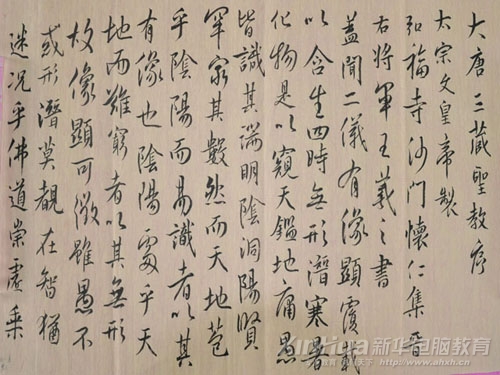 大唐三藏聖教序
太宗文皇帝製
弘福寺沙門懷仁集晋
右將軍王羲之書
蓋聞二儀有像顯覆載
以含生四時無形潛寒暑
化物是以窺天鑑地庸愚
皆識其端明陰洞陽賢
罕窮其數然而天地苞
乎陰陽而易識者以其
有像也陰陽處乎天
地而難窮者以其無形
故像顯可徵雖愚不
或形潛莫覩在智猶
迷況乎佛道崇虛乘
XinHua新华电脑教育
www.ahxh.cn